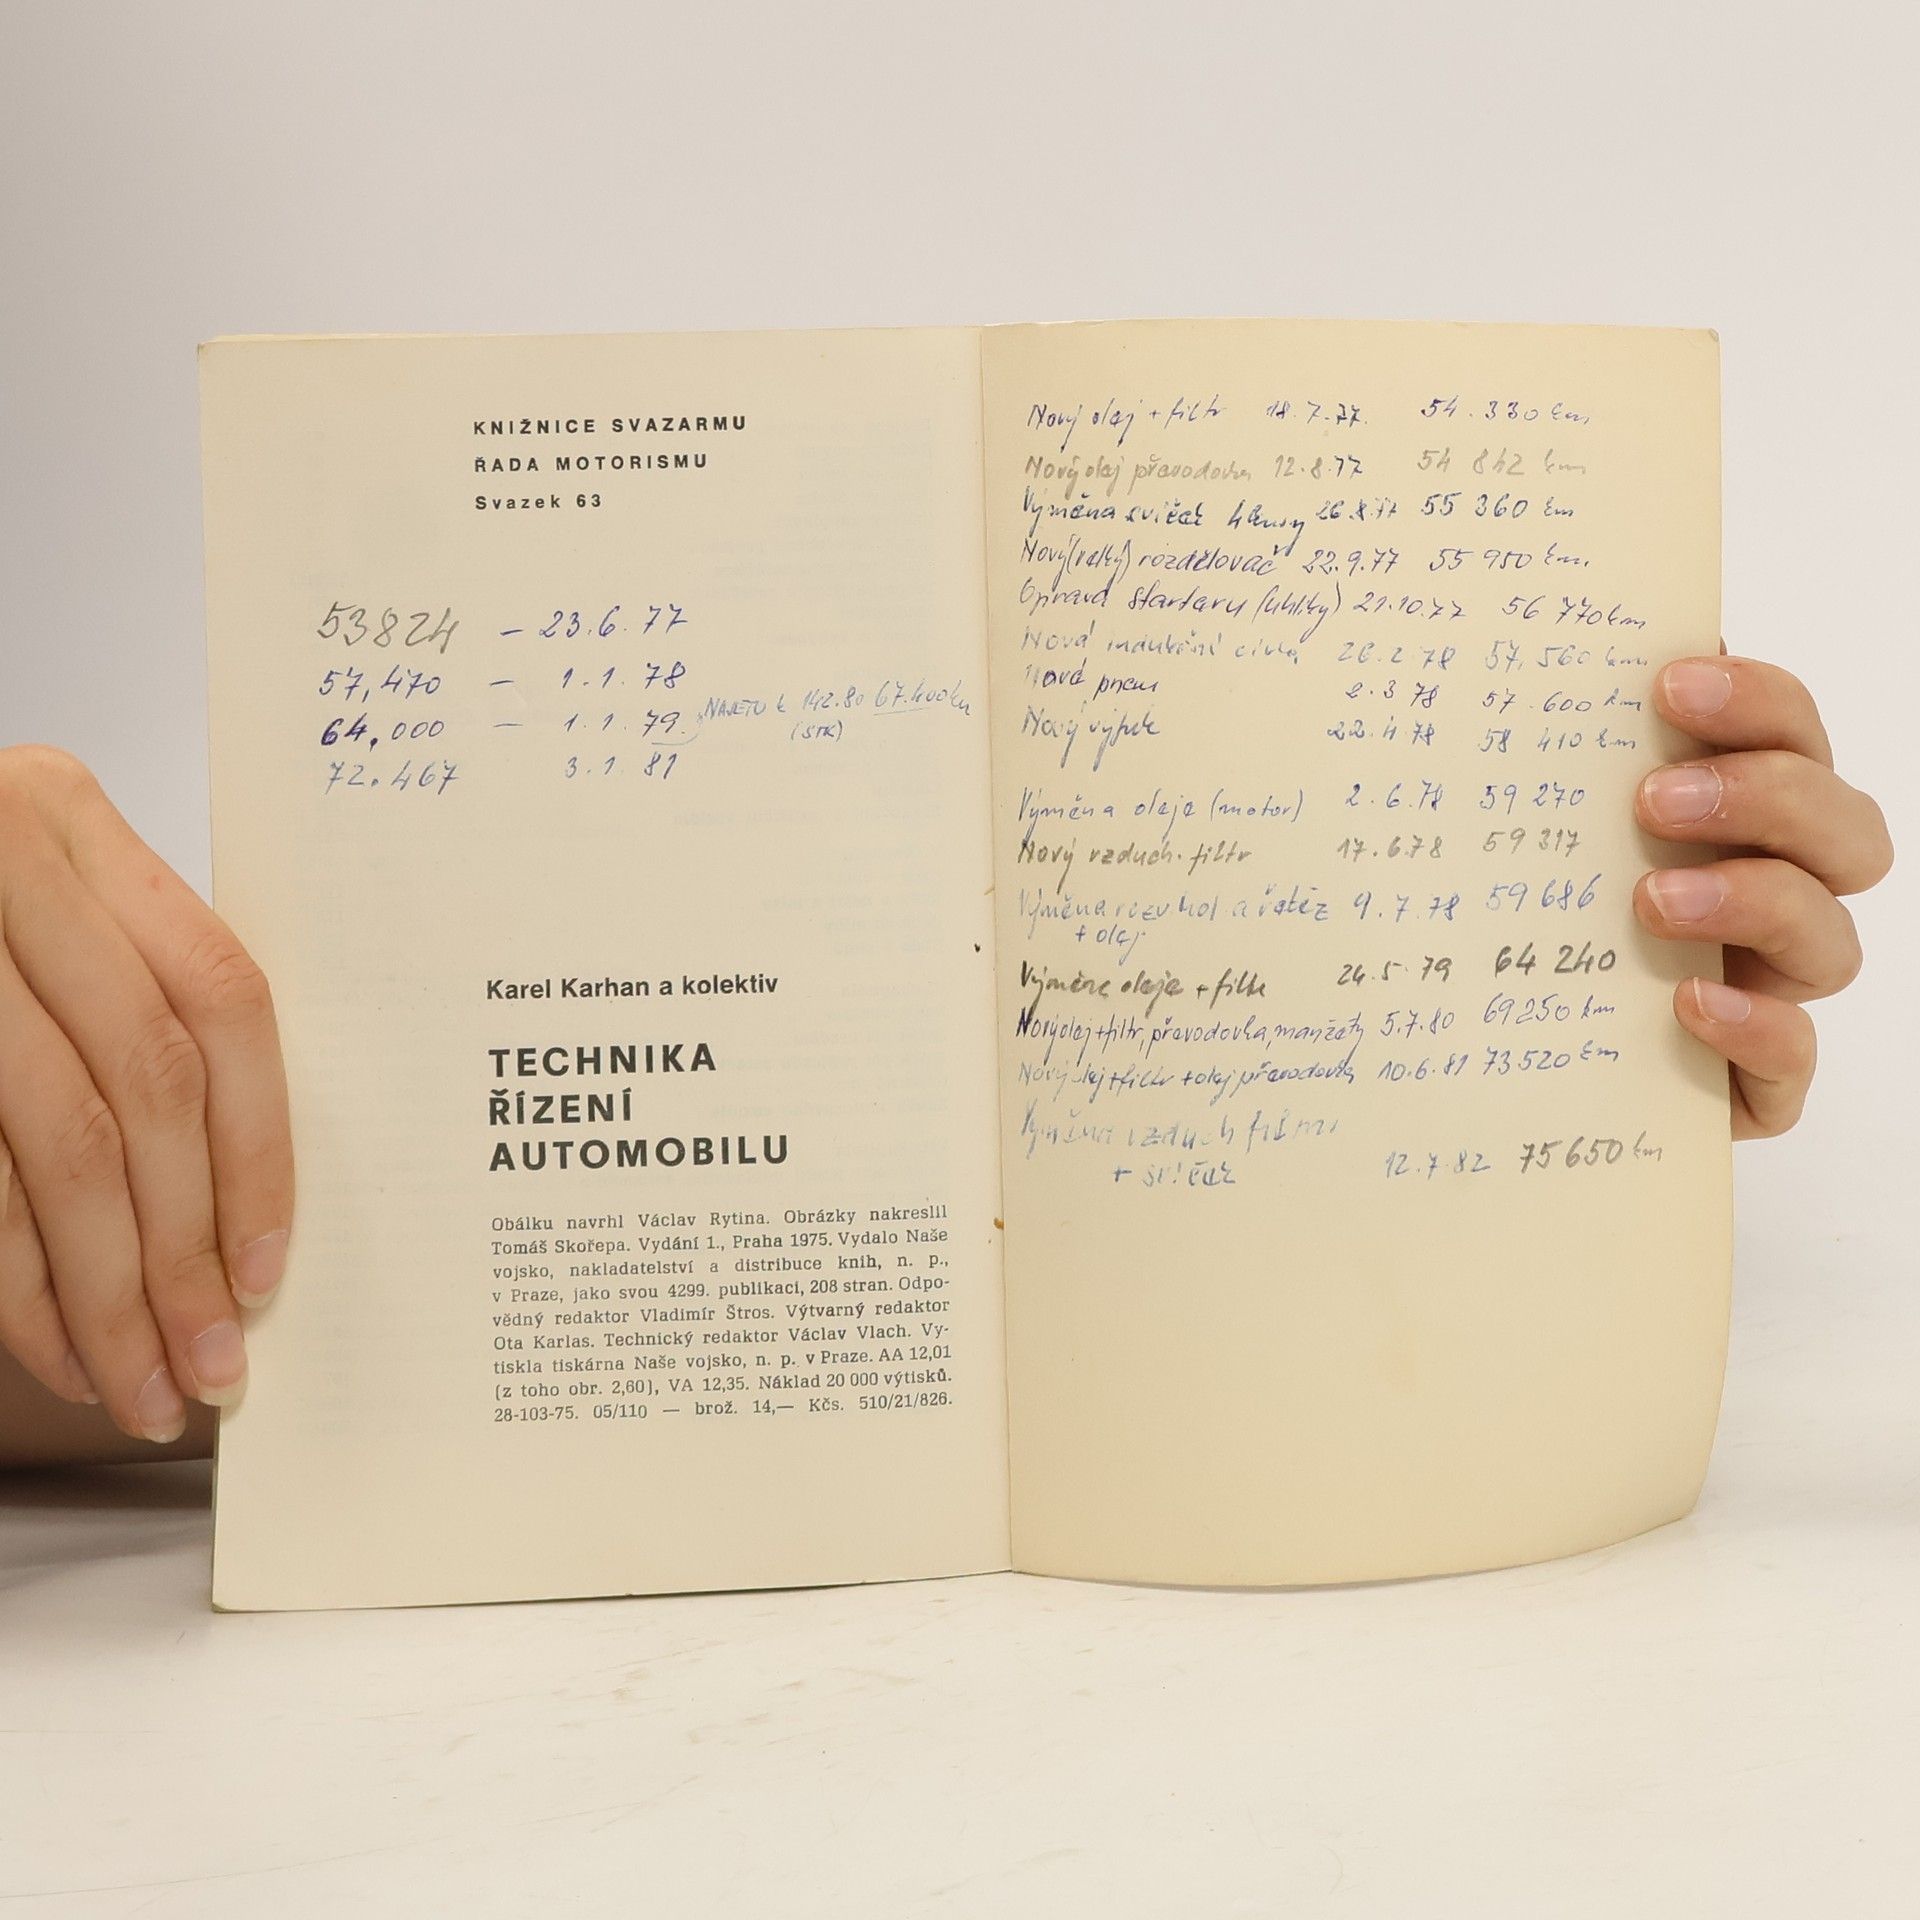 KNIŽNICE SVAZARMU
ŘADA MOTORISMU
Svazek 63
53824 – 23.6.77
57,470 – 1.1.78
64,000 – 1.1.79. NAJETO k 67.400 km
(STK)
72.467 3.1.81
Karel Karhan a kolektiv
TECHNIKA
ŘÍZENÍ
AUTOMOBILU
Obálku navrhl Václav Rytina. Obrázky nakreslil
Tomáš Skořepa. Vydání 1., Praha 1975. Vydalo Naše
vojsko, nakladatelství a distribuce knih, n. p.,
v Praze, jako svou 4299. publikaci, 208 stran. Odpo-
vědný redaktor Vladimír Štros. Výtvarný redaktor
Ota Karlas. Technický redaktor Václav Vlach. Vy-
tiskla tiskárna Naše vojsko, n. p. v Praze. AA 12,01
(z toho obr. 2,60), VA 12,35. Náklad 20 000 výtisků.
28-103-75. 05/110 — brož. 14,— Kčs. 510/21/826.
Nový olej + filtr 18.7.77. 54.330 km
Nový olej převodovka 12.8.77 54 842 km
Výměna svíček 26.8.77 55 360 km
Nový (velký) rozdělovač 22.9.77 55 950 km.
Oprava startaru (uhlíky) 21.10.77 56 770 km
Nová indukční cívka 26.2.78 57,560 km
Nová pneu 2.3.78 57.600 km
Nový výfuk 22.4.78 58 410 km
Výměna oleje (motor) 2.6.78 59 270
Nový vzduch. filtr 17.6.78 59 317
Výměna a řetěz 9.7.78 59 686
+ olej
Výměna oleje + filtr 24.5.79 64 240
Nový olej + filtr, převodovka, manžety 5.7.80 69250 km
Nový olej + filtr + olej převodovka 10.6.81 73 520 km
Výměna vzduch filtru
+ svíček 12.7.82 75 650 km